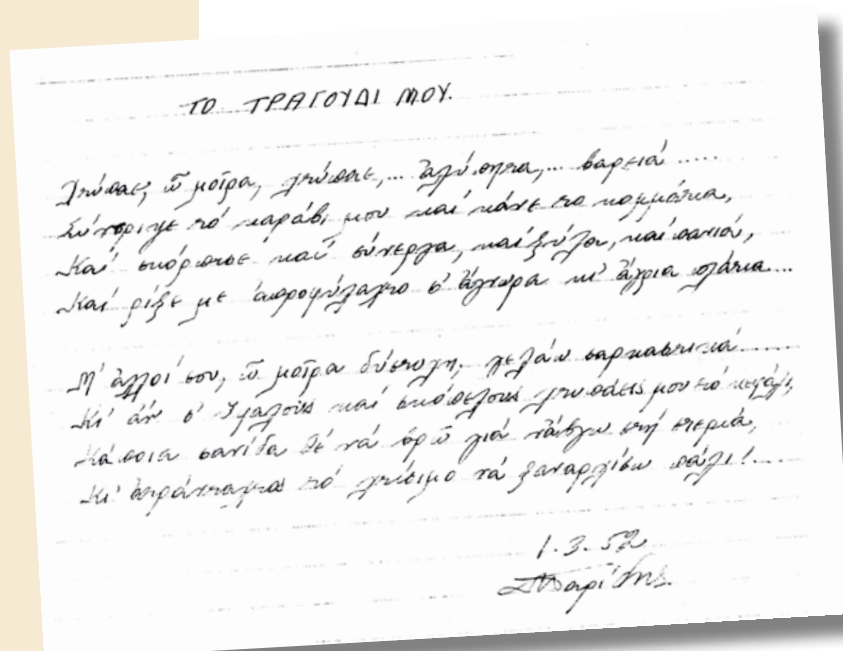 ΤΟ ΤΡΑΓΟΥΔΙ ΜΟΥ.
Χτύπαε, ὦ μοῖρα, χτύπαε,... ἀλύπητα,... βαρειά.....
Σύντριψε τό καράβι μου καί κάνε το κομμάτια,
Καί σκόρπισε καί σύνεργα, καί ξύλα, καί πανιά,
Καί ρίξε με ἀπροφύλαχτο σ' ἄγνωρα κι' ἄγρια πλάτια....
Μ' ἀλλοί σου, ὦ μοῖρα δύστυχη, γελάω σαρκαστικά.......
Κι' ἄν σ' ὑφάλους καί σκόπελους χτυπάεις μου τό κεφάλι,
Κάποια σανίδα θέ νά βρῶ γιά νἄβγω στή στεριά,
Κι' ἀπράνταχτος τό χτίσιμο νά ξαναρχίσω πάλι!.....
1.3.52